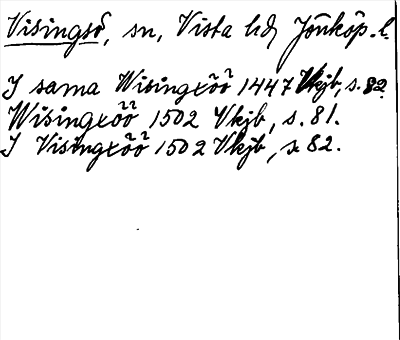 Visingsö, sn, Vista hd, Jönköp. l.
I sama Wisingxöö 1447 Vkjb, s. 82
Wisingxöö 1502 Vkjb, s. 81.
I Visingxöö 1502 Vkjb, s 82.